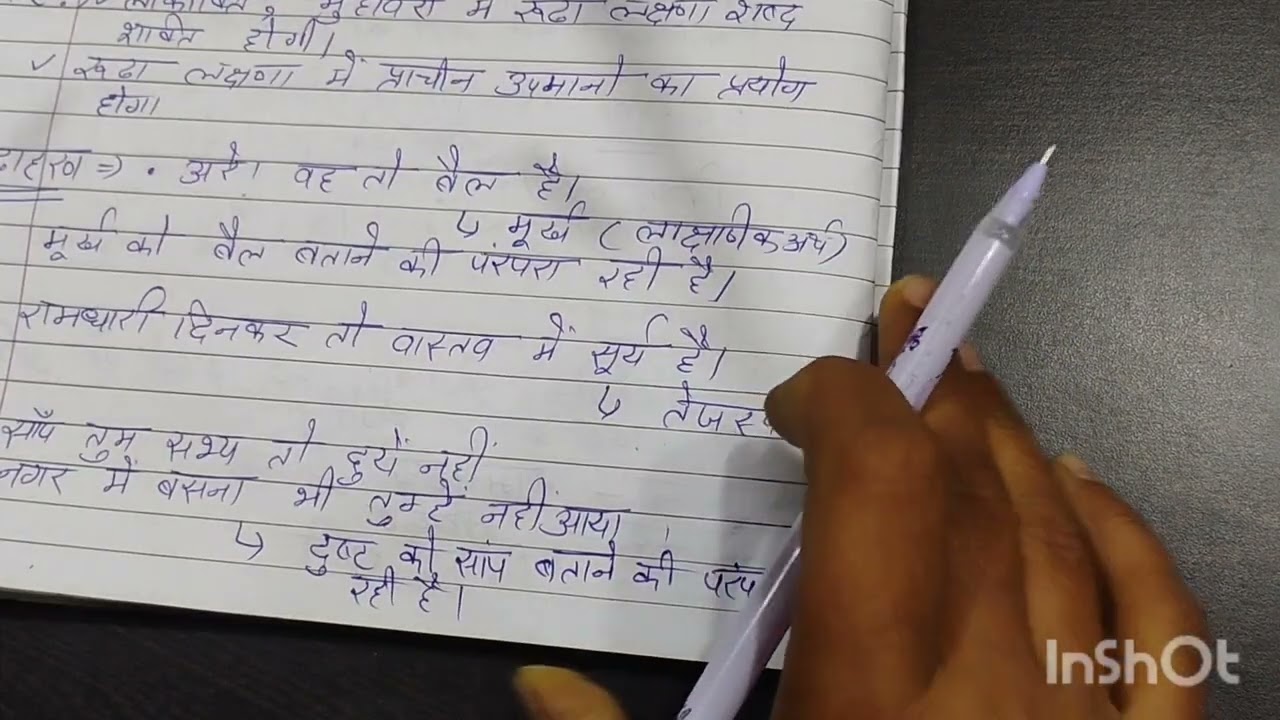 लोकोक्ति, मुहावरों में रूढा लक्षणा शब्द
शक्ति होगी।
✓ रूढा लक्षणा में प्राचीन उपमानो का प्रयोग
होगा
⇒ • अरे। वह तो बैल है।
↳ मूर्ख (लाक्षाणिक अर्थ)
मूर्ख को बैल बताने की परंपरा रही है।
रामधारी दिनकर तो वास्तव में सूर्य है।
↳
साँप तुम सभ्य तो हुयें नहीं
नगर में बसना भी तुम्हें नहीं आया
↳ दुष्ट को सांप बताने की
रही है।
InShOt